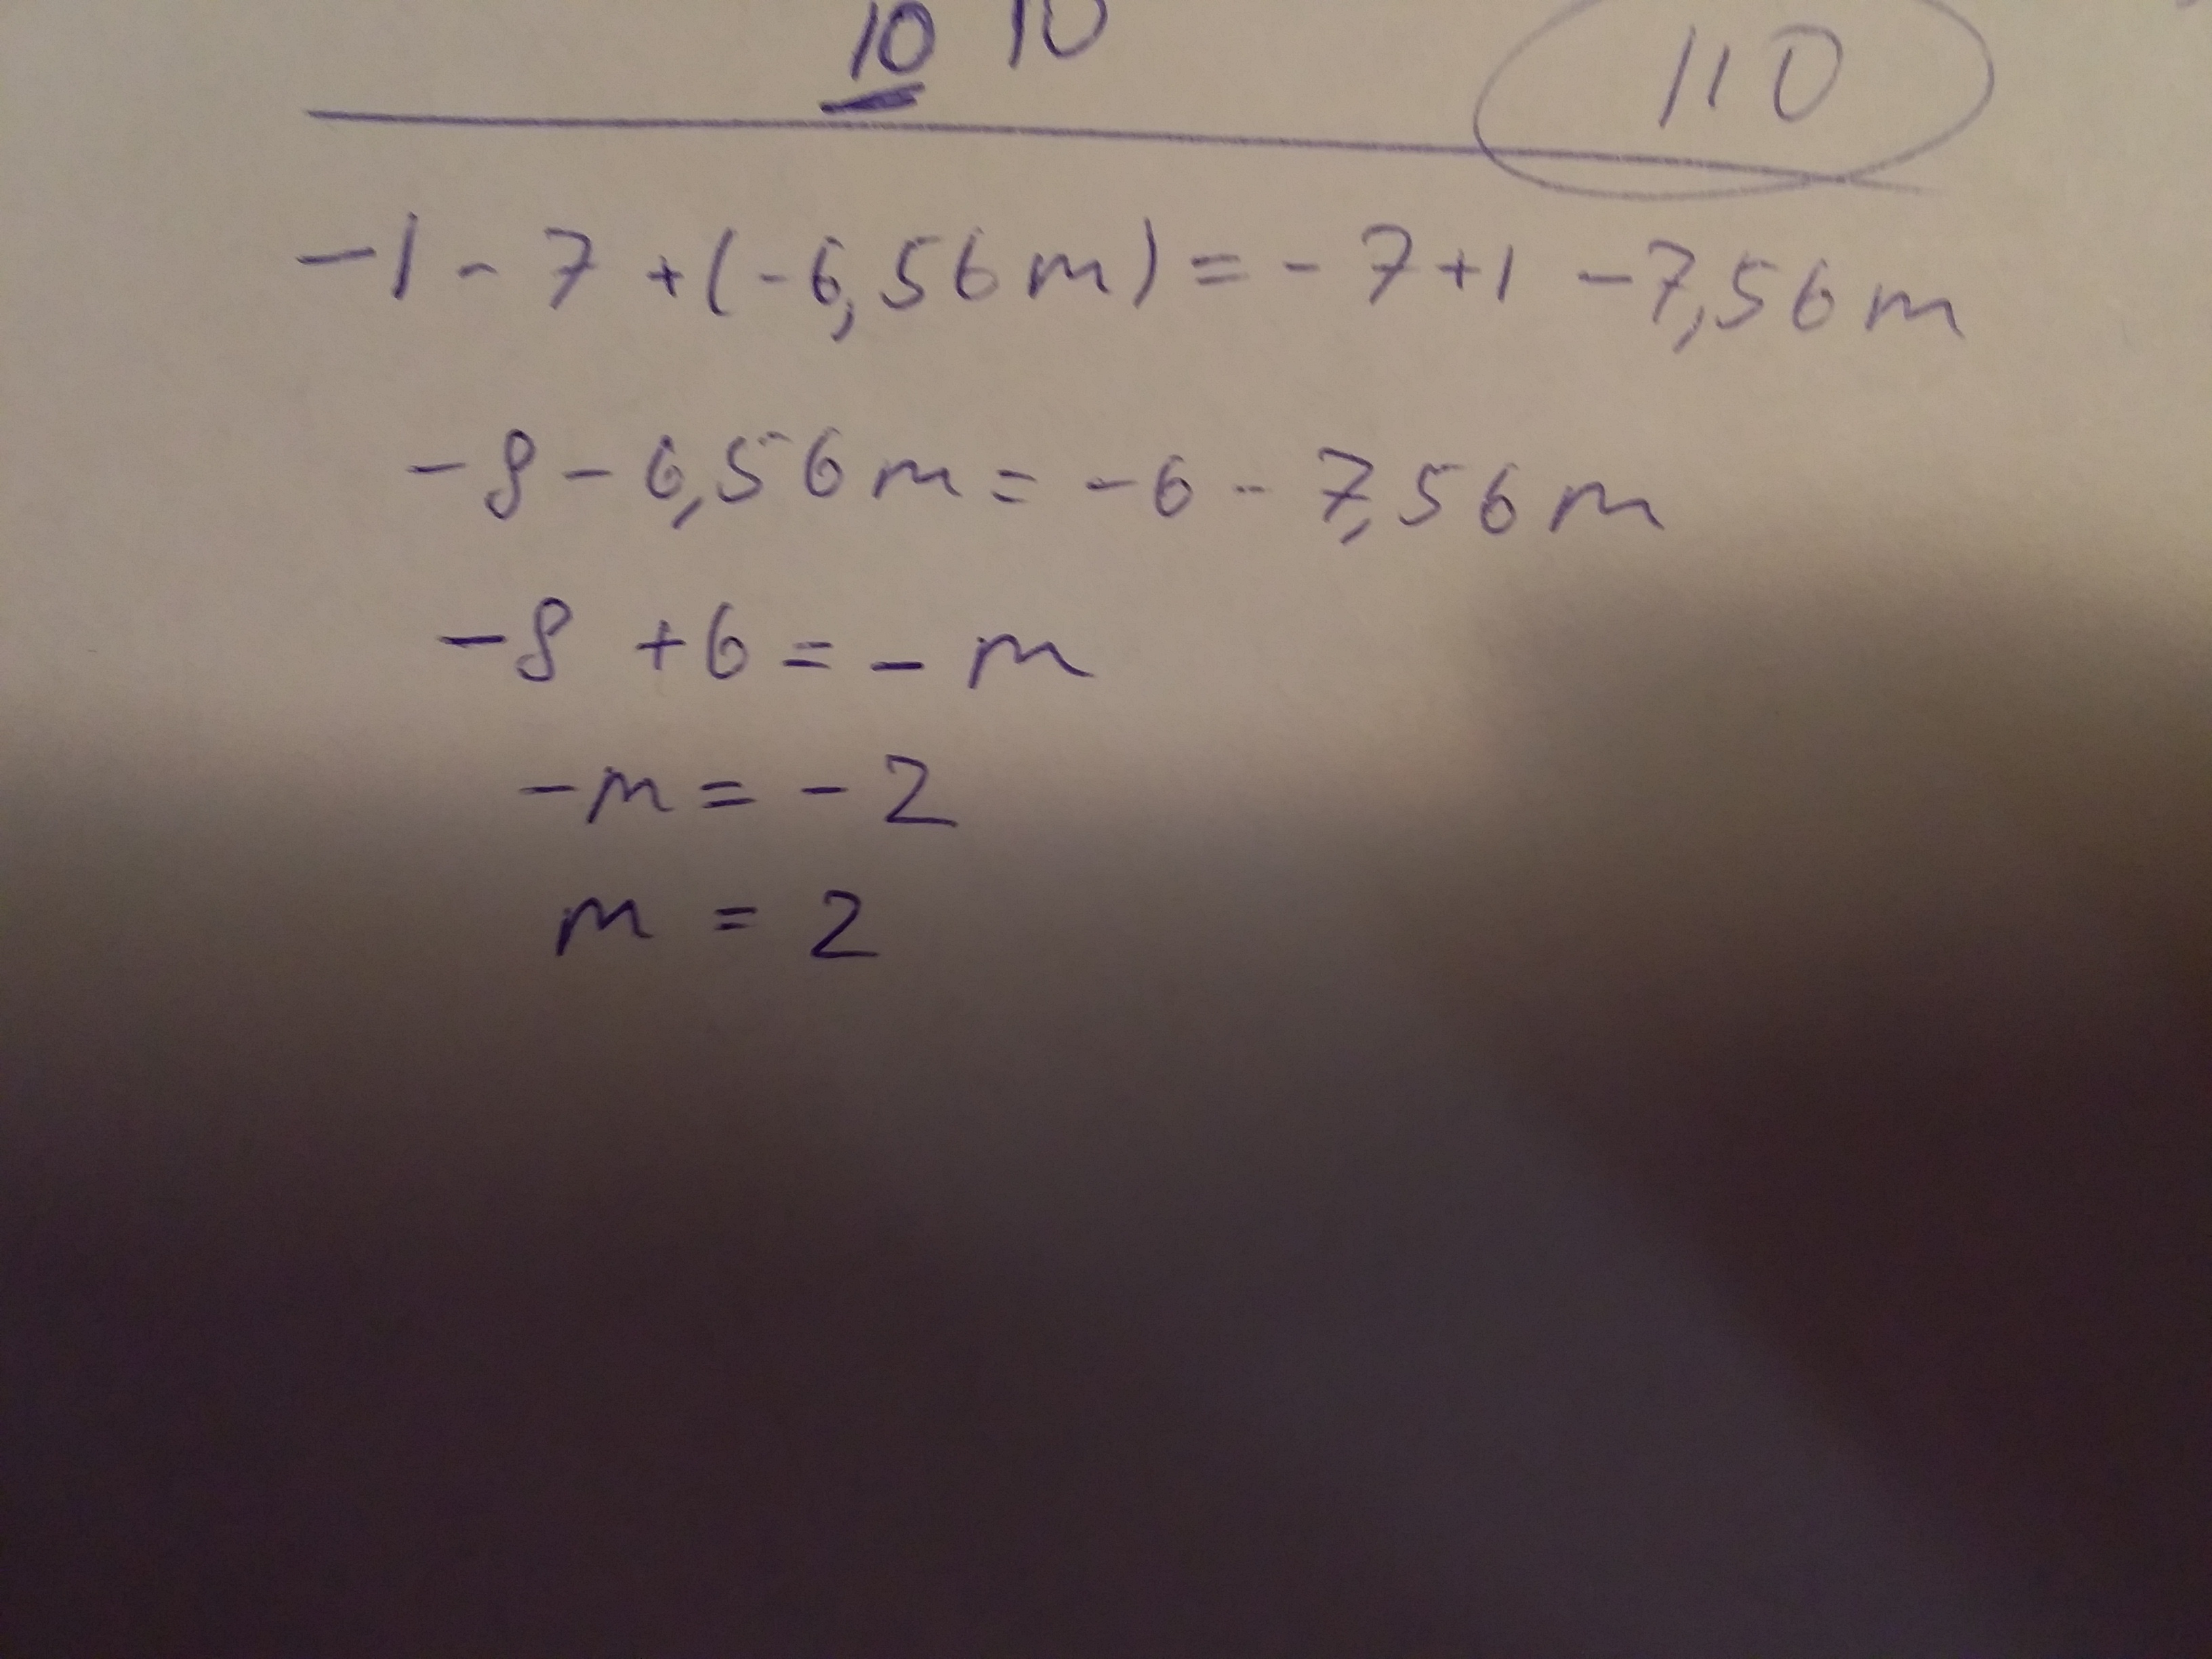 10 10
110
-1 - 7 + (-6,56m) = - 7 + 1 - 7,56m
-8 - 6,56m = -6 - 7,56m
-8 + 6 = - m
-m = - 2
m = 2